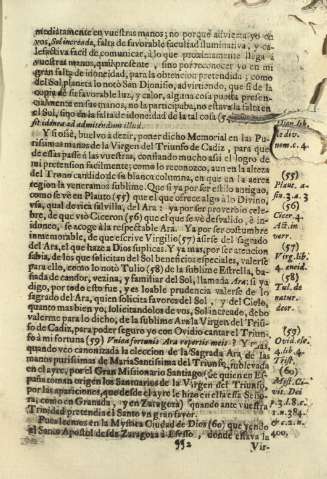 mediatamente en vuestras manos; no porque advierta yo en
vos, Sol increado, falta de favorable facultad iluminativa, y ca-
lefactiva facil de comunicar, à lo que proximamente llega à
vuestras manos, quan presente, sino por reconocer yo en mi
gran falta de idoneidad, para la obtencion pretendida; como
del Sol planeta lo notò San Dionisio, advirtiendo, que si de la
copia de sus favorable luz, y calor, alguna cosa puesta presen-
cialmente en sus manos, no la participaba, no estava la falta en
el Sol, sino en la falta de idoneidad de la tal cosa
est idonea ad admittendum illud.
Y si osè, buelvo à dezir, poner dicho Memorial en las Pu-
rissimas manos de la Virgen del Triunfo de Cadiz, para que
de estas passe à las vuestras, confiando mucho assi el logro de
mi pretension facilmente; como lo reconozco, aun en la alteza
del Trono candido de su blanca columna, en que en la aerea
region la veneramos sublime. Que si ya por ser estilo antiguo,
como se vè en Plauto (55) que el que ofrece algo à lo Divino,
usa, qual de rica salvilla, del Ara; ya por ser proverbio cele-
bre, de que viò Ciceron (56) que el que se vè desvalido, è in-
idoneo, se acoge à la respectable Ara. Ya por ser costumbre
inmemorable, de que escrive Virgilio (57) asirse del sagrado
del Ara, el que haze à Dios suplicas. Y ya mas, por ser atencion
sabia, de los que solicitan del Sol beneficios especiales, valerse
para ello, como lo notò Tulio (58) de la sublime Estrella, ba-
ñada de candor, vezina, y familiar del Sol, llamada Ara: si ya
digo, por todo esto fue, y es loable prudencia valerse de lo
sagrado del Ara, quien solicita favores del Sol, y del Cielo,
quanto mas bien yo, solicitandolos de vos, Sol increado, debo
valerme para lo dicho, de la sublime Ara la Virgen del Triun-
fo de Cadiz, para poder seguro yo con Ovidio cantar el Triun-
fo à mi fortuna (59) Unica fortunis Ara reperta meis? Y mas
quando veo canonizada la eleccion de la Sagrada Ara, de las
manos purissimas de Maria Santissima del Triunfo, sublevada
en el ayre, por el Gran Missionario Santiago (de quien en Es-
paña toman origen los Santuarios de la Virgen del Triunfo,
por las apariciones, que desde el ayre le hizo en ella esta Seño-
ra; como en Granada, y en Zaragoza) quando ante vuestra
Trinidad pretendia el Santo un gran favor.
Pues leemos en la Mystica Ciudad de Dios (60) que yendo
el Santo Apostol desde Zaragoza à Efesso, donde estava la
Vir-
(55)
Plaut. a-
(56)
Cicer. 4
(57)
Virg. lib.
4. eneid.
(58)
Tul. de
natur.
deor.
(59)
Ovid. ele.
4. lib. 4
Trist.
(60)
vit. Dei
400.